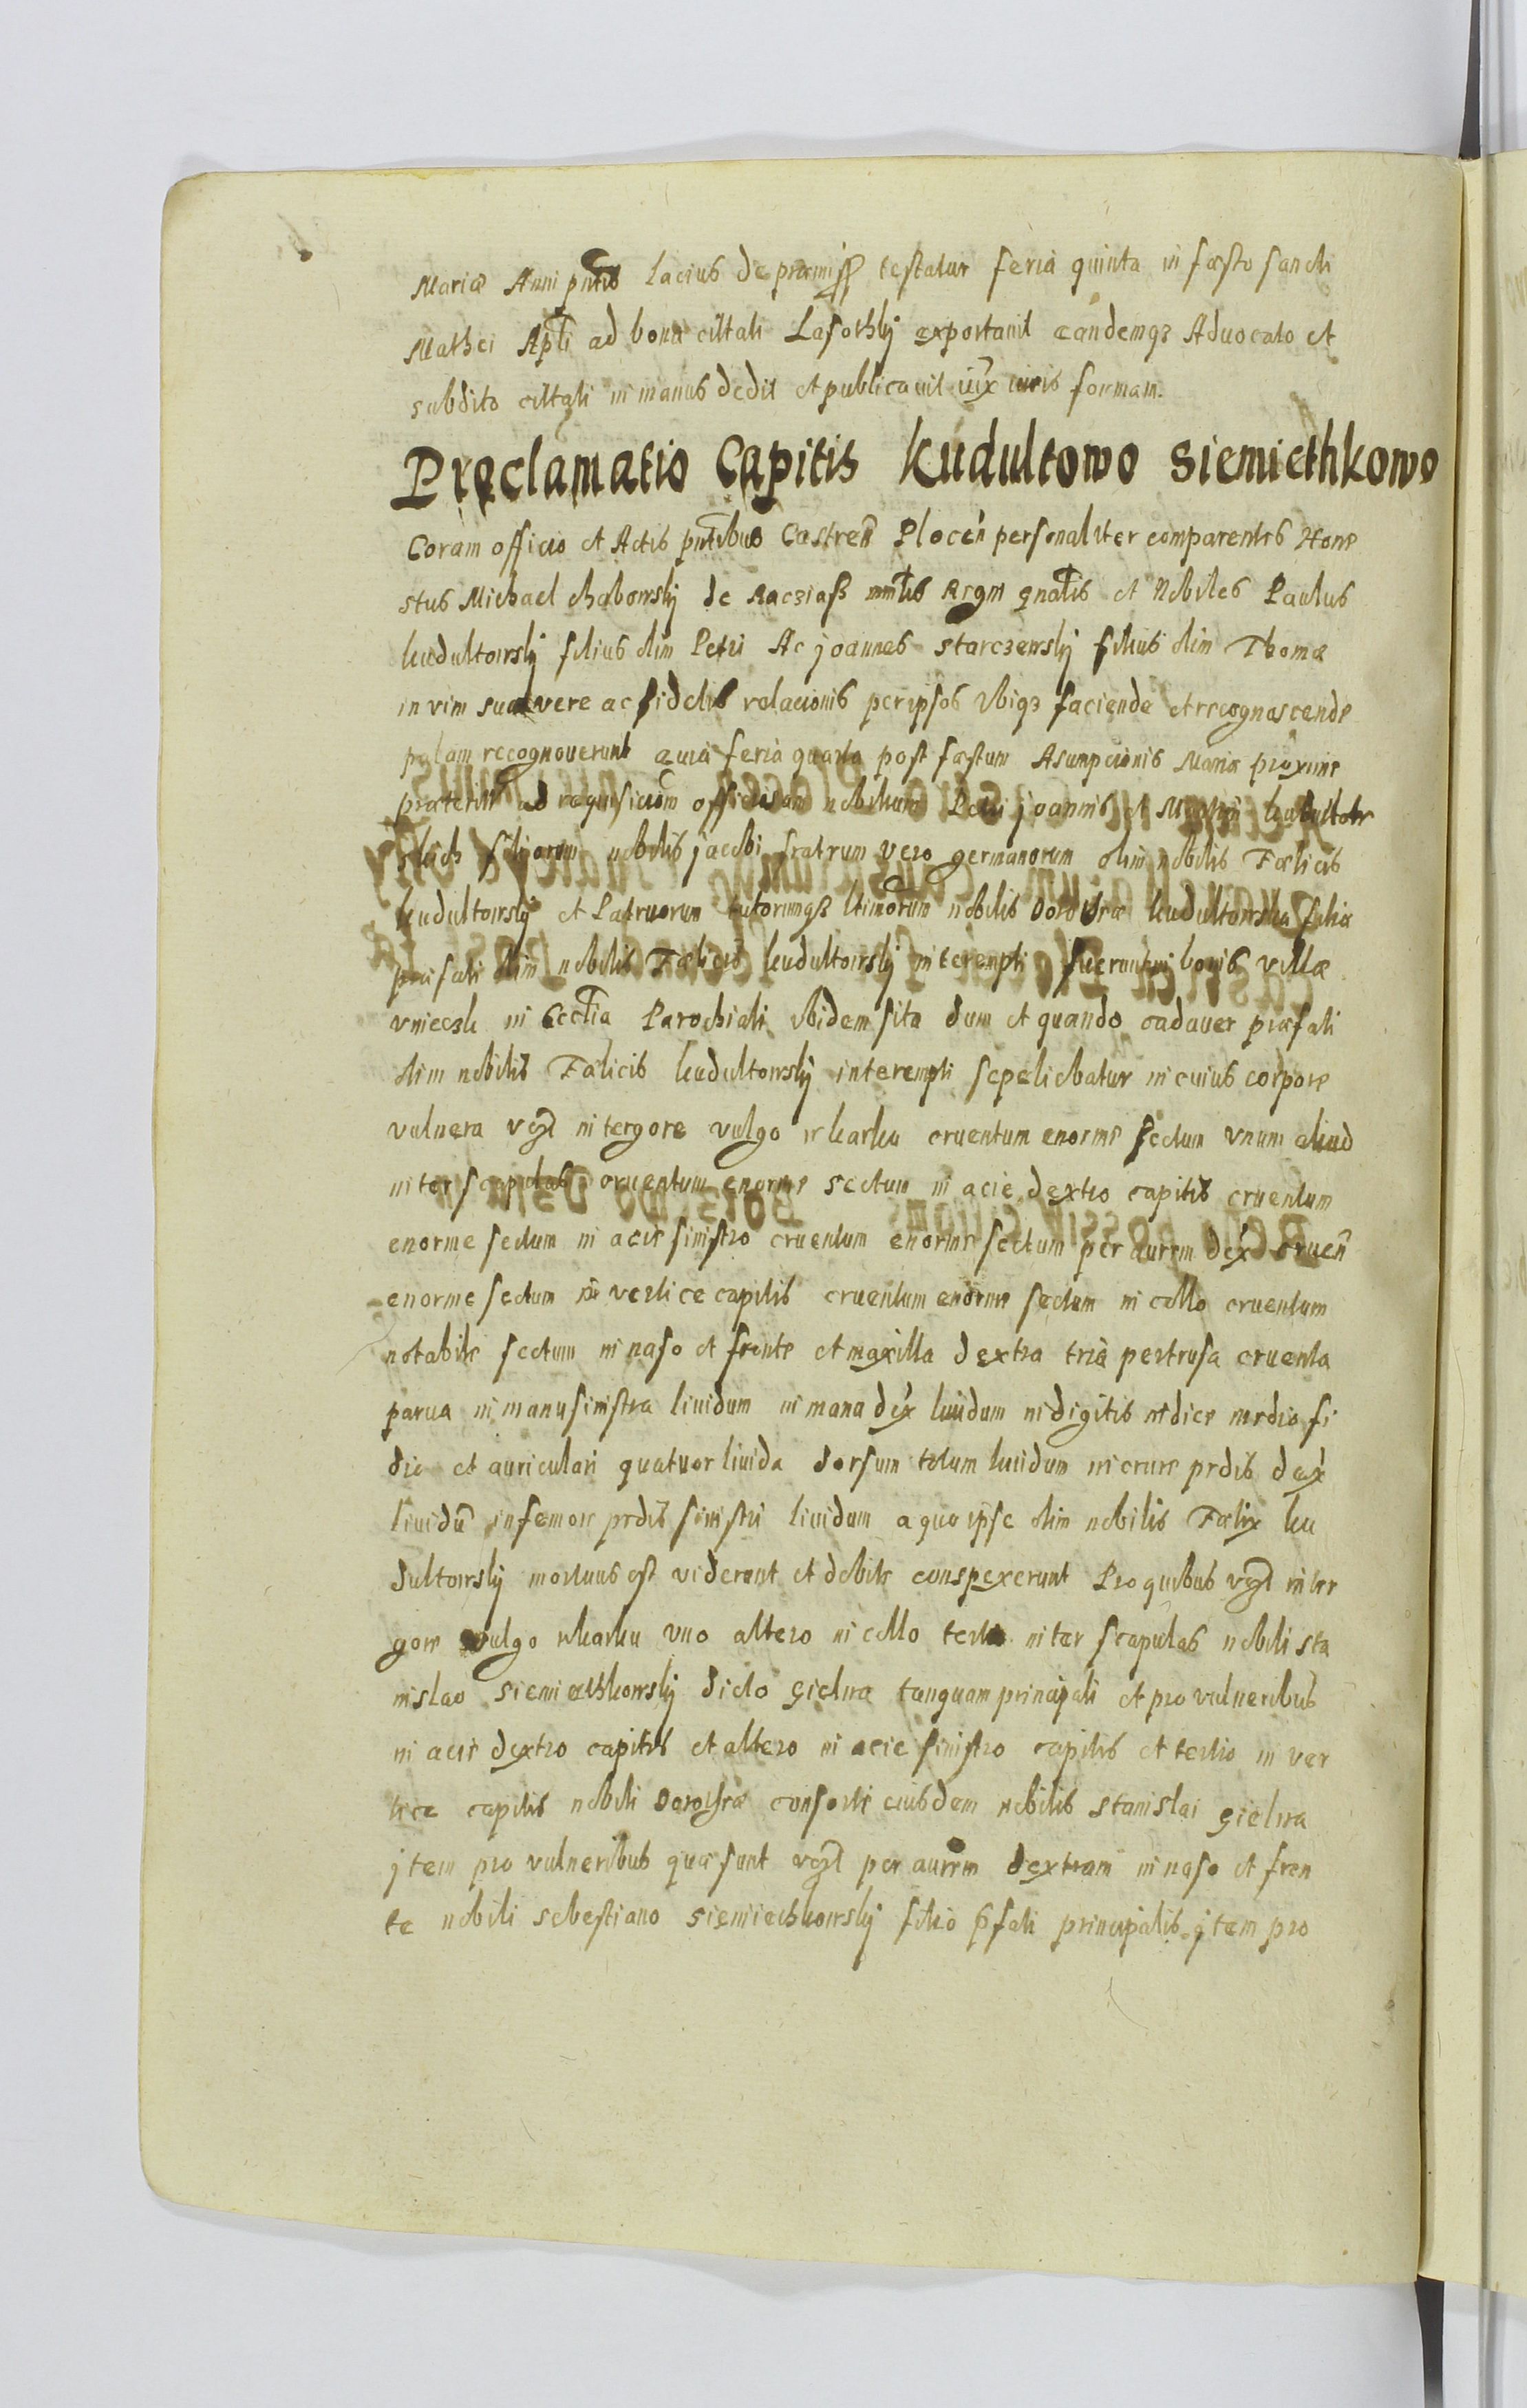 Mariæ Anni pntis Lacius de præmiss testatur feria quinta in fæsto sancti
Mathei Apli ad bona cittati Lasothky exportauit eandemqз Aduocato et
subdito cittati in manus dedit et publicauit iux iuris formam.
Proclamatio Capitis Kudultowo Siemiethkowo
Coram officio et Actis pntibus Castren Plocen personaliter comparentes Hone
stus Michael chabowsky de Racziaß mnlis Regni gnalis et Nobiles Paulus
kudultowsky filius olim Petri Ac joannes Starczewsky filius olim Thomæ
in vim suæ vere ac fidelis relacionis per ipsos vbiqз faciende et recognoscende
palam recognouerunt quia feria quarta post fæstum Asumpcionis Mariæ proxime
præterita ad requisicion officiosam nobilium Petri joannis et kudultow
skich filiorum nobilis jacobi fratrum vero germanorum olim nobilis Fælicis
kudultowsky et Patruorum tutorumqз ltimorum nobilis Dorothæ kudultowska filiæ
præfati olim nobilis Fælicis kudultowsky interempti fuerunt in bonis villæ
vniecsk in Ecclia Parochiali ibidem sita dum et quando cadauer præfati
olim nobilis Fælicis kudultowsky interempti sepeliebatur in cuius corpore
vulnera vzl in tergore vulgo w karku cruentum enorme sectum vnum aliud
inter scapulas cruentum enorme sectum in acie dextro capitis cruentum
enorme sectum in acie sinistro cruentum enorme sectum per aurem dex cruen
enorme sectum in vertice capitis cruentum enorme sectum in collo cruentum
notabile sectum in naso et fronte et maxilla dextra tria pertrusa cruenta
parua in manu sinistra liuidum in manu dex liuidum in digitis indice medio fi
dio et auriculari quatuor liuida dorsum totum liuidum in crure pedis dex
liuidu in femore pedis sinistri liuidum a quo ipse olim nobilis Fælix ku
dultowsky mortuus est viderunt et debite conspexerunt Pro quibus vzl in ter
gore vulgo wkarku vno altero in collo tertio inter scapulas nobili Sta
nislao Siemiethkowsky dicto gielwa tanquam principali et pro vulneribus
in acie dextro capitis et altero in acie sinistro capitis et tertio in ver
tice capitis nobili Dorothæ consorte eiusdem nobilis Stanislai gielwa
jtem pro vulneribus quæ sunt vzl per aurem dextram in naso et fron
te nobili Sebestiano Siemiethkowsky filio pfati principalis jtem pro